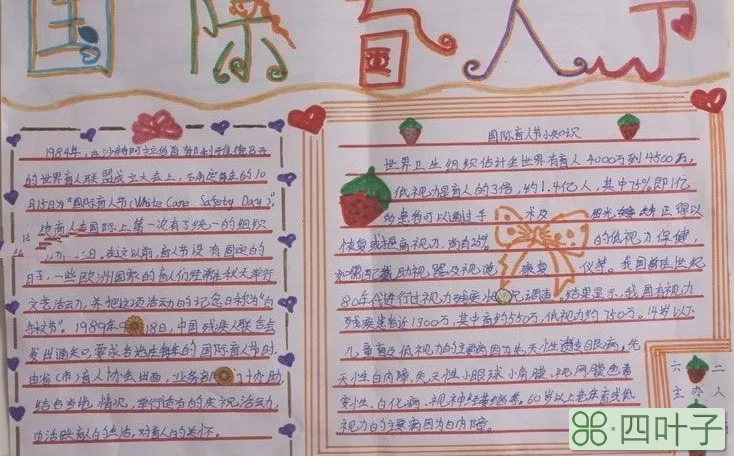 国际盲人节
1984年,在沙特阿拉伯首都利雅得召开
的世界盲人联盟成立大会上,确定每年的10
月15日为“国际盲人节(White Cane Safety Day)”
盲人在国际上第一次有了统一的组织
在这以前,盲人节没有固定的
日子,一些欧洲国家的盲人们经常在秋天举行
文艺活动,并把这项活动的纪念日称为“白
手杖节”。1989年9月18日,中国残疾人联合会
发出通知,要求各地在每年的国际盲人节时,
由省(市)盲人协会出面,业务部门协助,
结合当地情况,举行适当的庆祝活动,
以活跃盲人的生活,对盲人的关怀。
国际盲人节小知识
世界卫生组织估计全世界有盲人4000万到4500万,
低视力是盲人的3倍,约1.4亿人,其中75%即1亿
的患者可以通过手术及
恢复或提高视力,尚有25%的低视力保健,
如果配戴助视器及视觉康复仪等。我国曾在世纪
80年代进行过视力残疾状况调查。结果显示,我国有视力
残疾患者近1300万,其中盲约550万,低视力约750万。14岁以下
儿童盲及低视力的主要病因为先天性遗传眼病,先
天性白内障、先天性小眼球小角膜、视网膜色素
变性、白化病、视神经萎缩等。60岁以上老年盲或低
视力的主要病因为白内障。
六二
主办人
四叶子